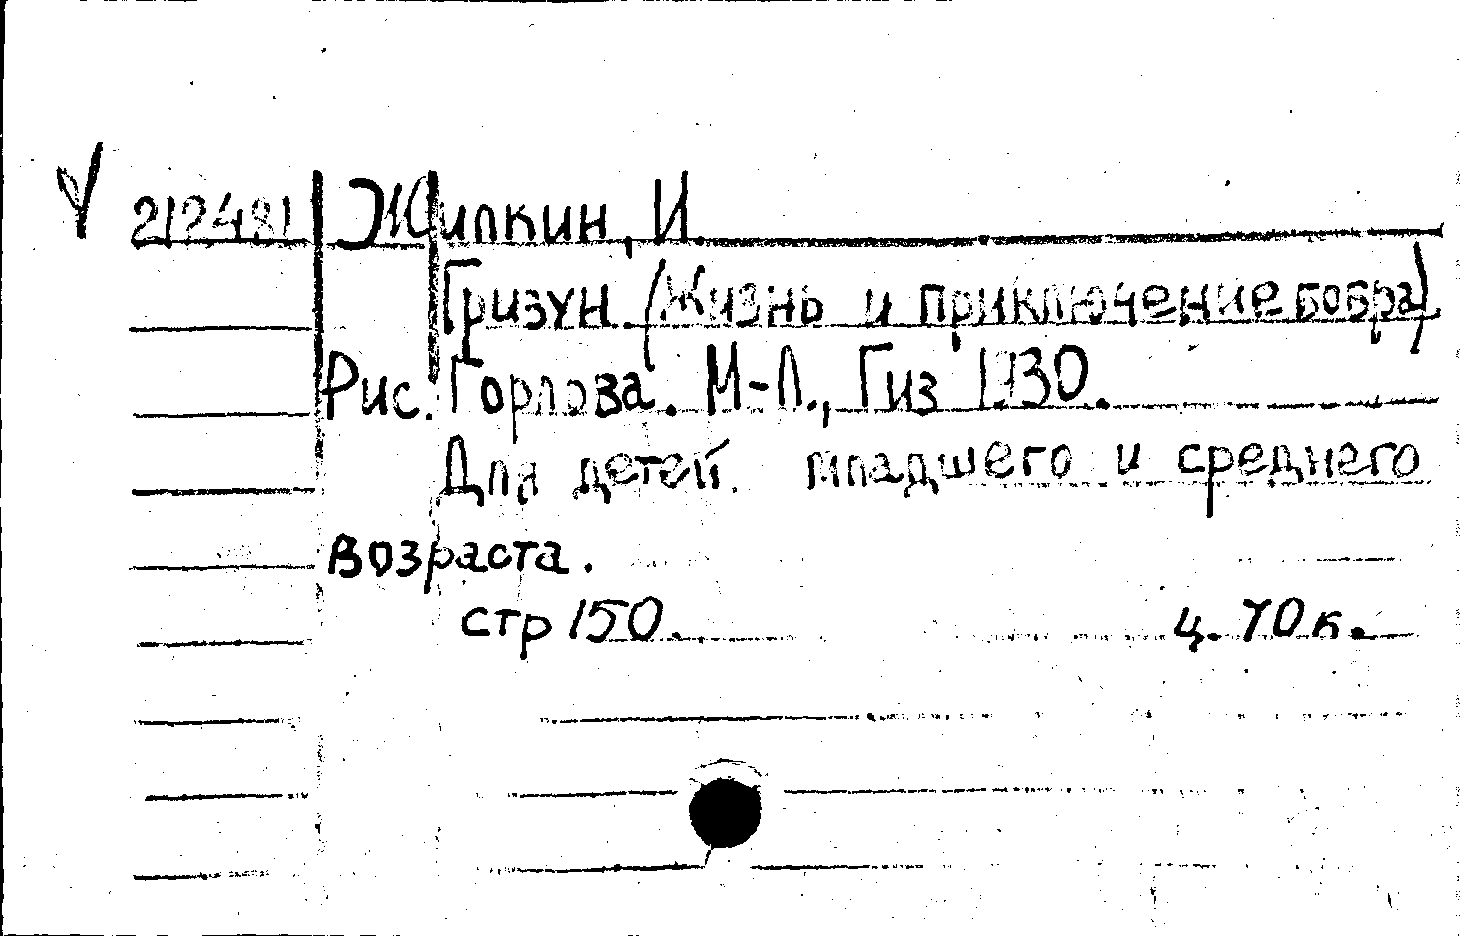 V 212481 Жилкин, И.
Гризун (Жизнь и приключение бобра)
Рис. Горлова. М-Л., Гиз 1930.
Для детей младшего и среднего
возраста.
стр 150. ц. 70 к.